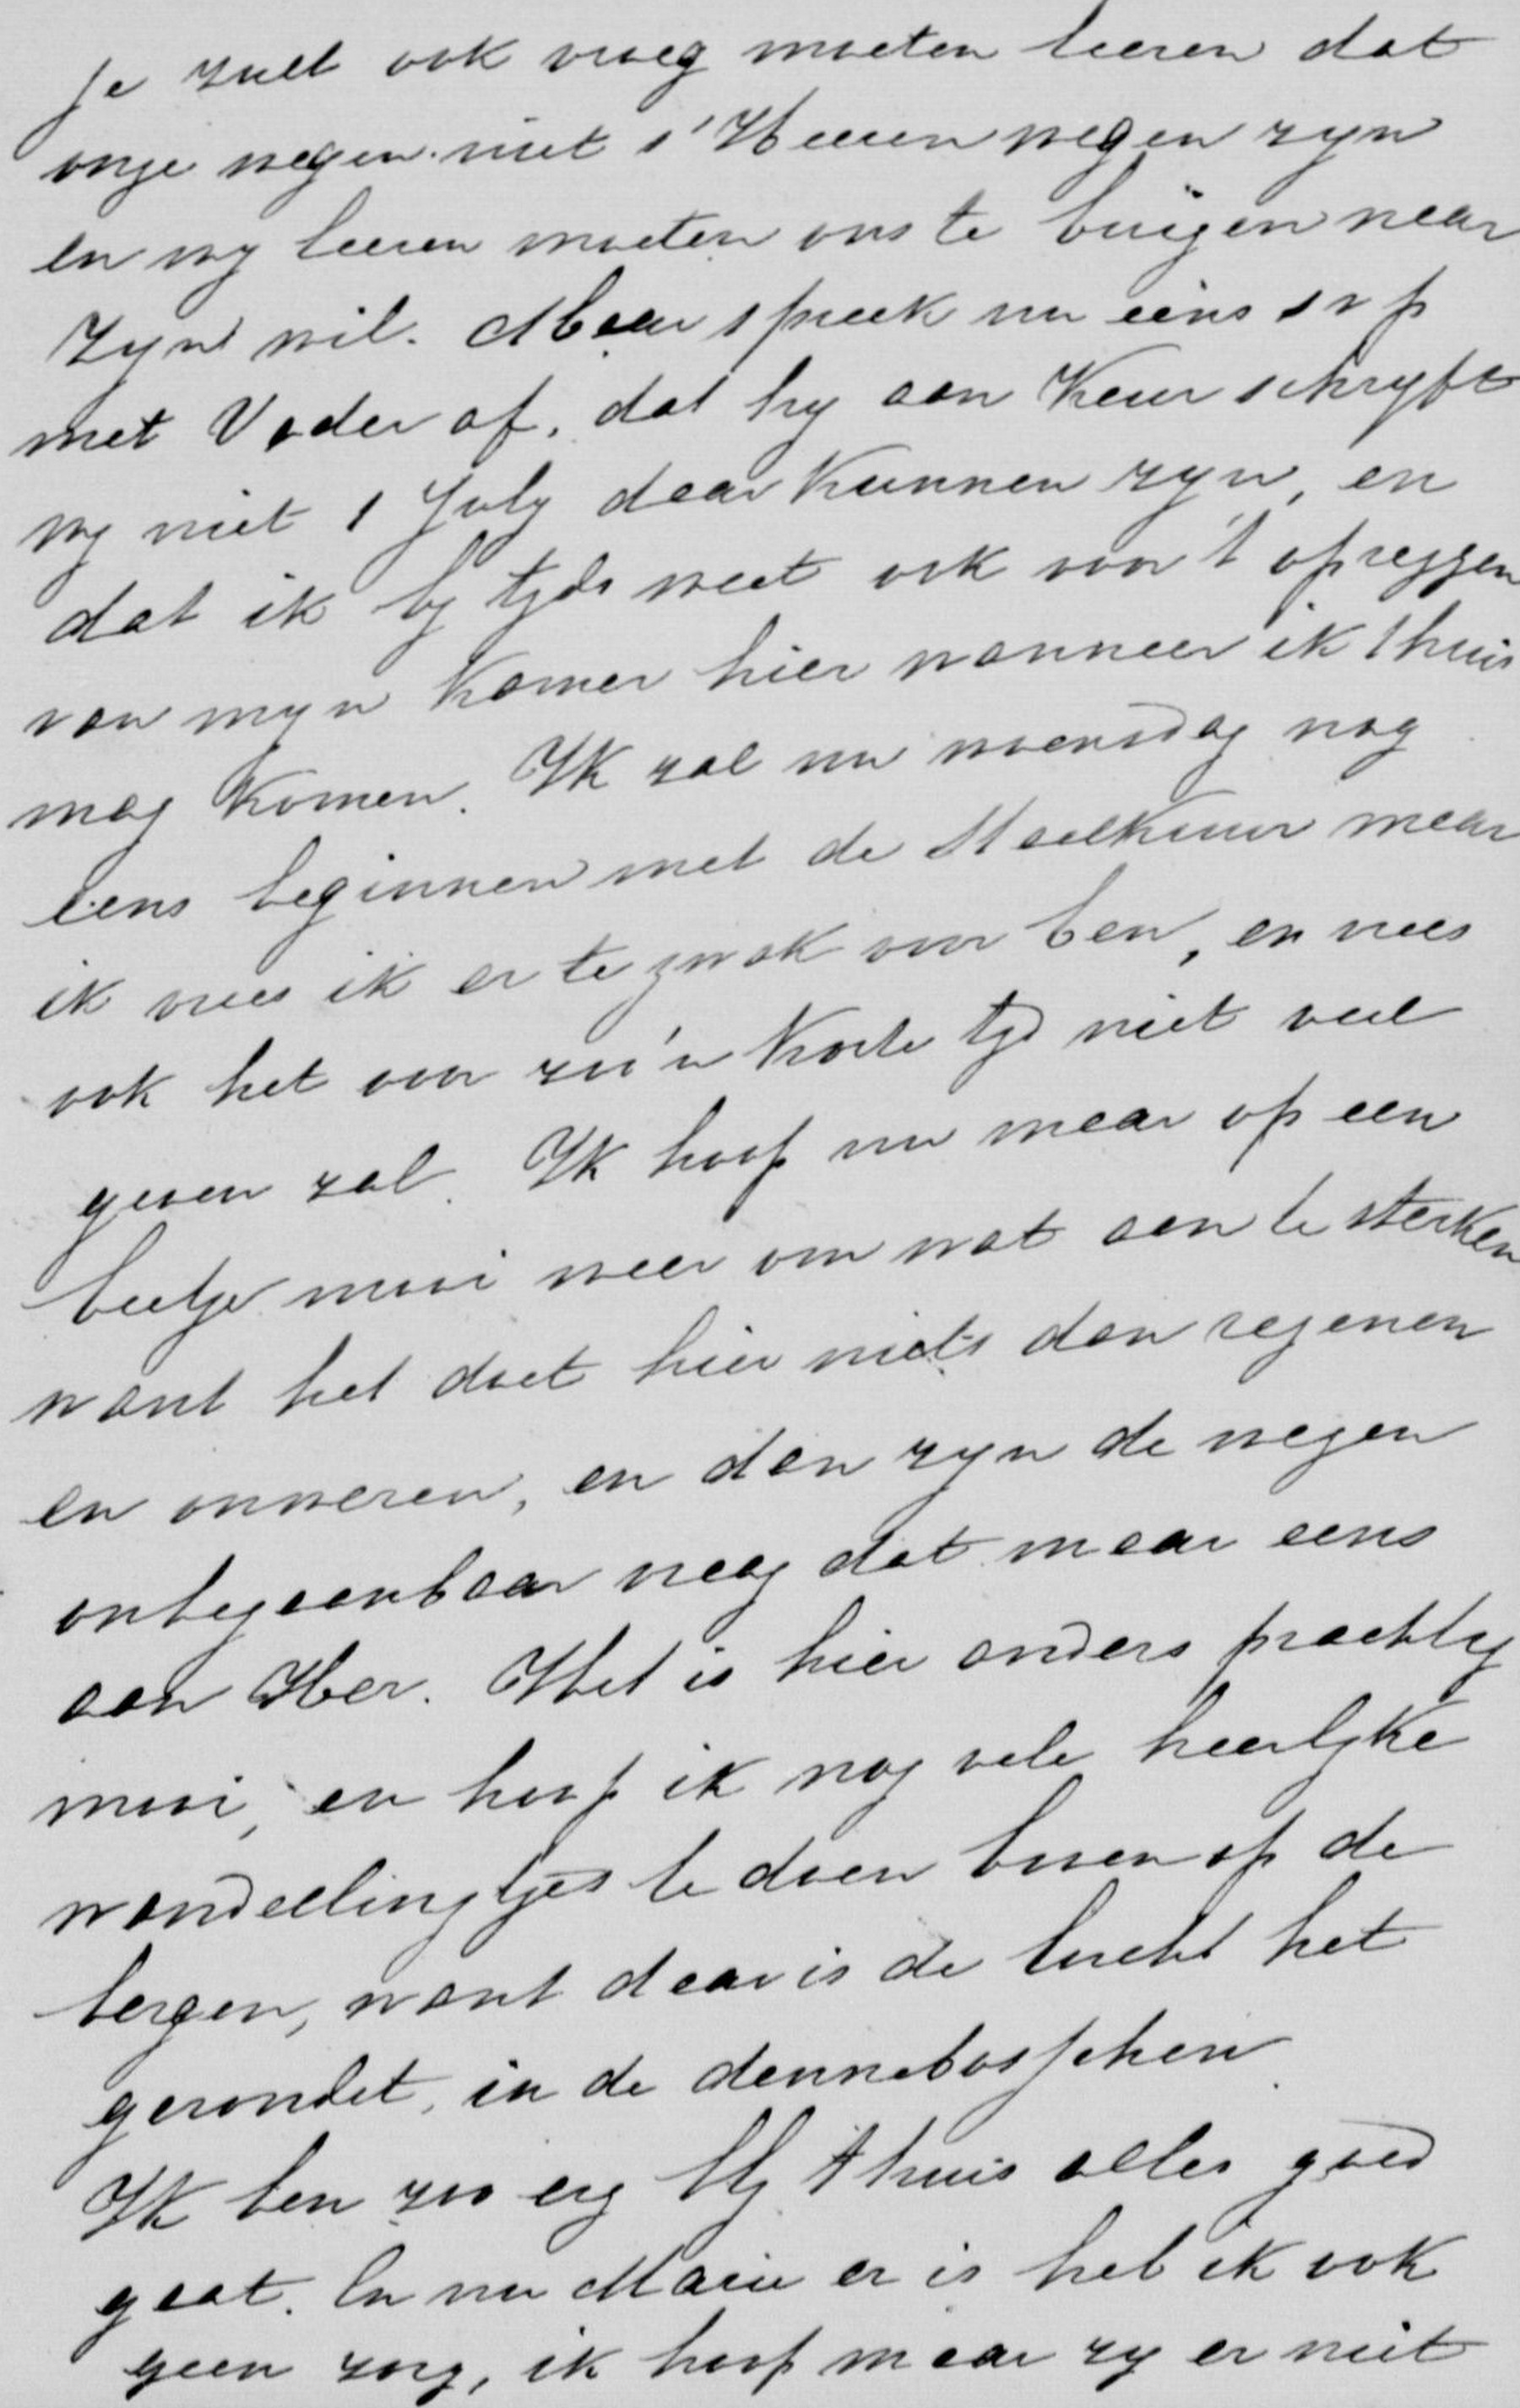 je zult ook vroeg moeten leeren dat
onze wegen niet s'Heeren wegen zyn
en wy leeren moeten ons te buigen naar
Zyn wil. Maar spreek nu eens svp
met Vader af, dat hy aan Keur schryft
wy niet 1 July daar kunnen zyn, en
dat ik by tyds weet ook voor 't opzeggen
van myn Kamer hier wanneer ik thuis
mag komen. Ik zal nu woensdag nog
eens beginnen met de Staalkuur maar
ik vrees ik er te zwak voor ben, en vrees
ook het voor zoo'n korte tyd niet veel
geven zal. Ik hoop nu maar op een
beetje mooi weer om wat aan te sterken
want het doet hier niets dan regenen
en onweren, en dan zyn de wegen
onbegaanbaar vraag dat maar eens
aan Her. Het is hier anders prachtig
mooi, en hoop ik nog vele heerlyke
wandellingtjes te doen boven op de
bergen, want daar is de lucht het
gezondst, in de dennebosschen.
Ik ben zoo erg bly thuis alles goed
gaat. En nu Marie er is heb ik ook
geen zorg, ik hoop maar zy er niet